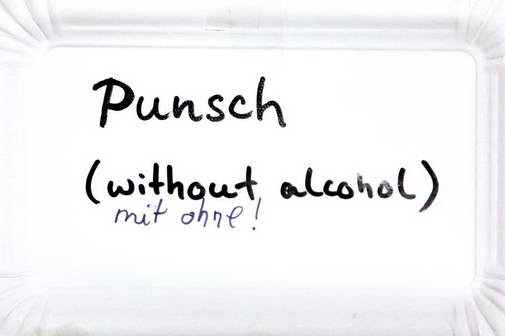 Punsch
(without alcohol)
mit ohne!